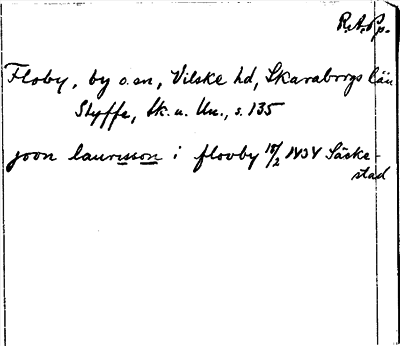 R.A.Pp.
Floby, by o. sn, Vilske hd, Skaraborgs län
Styffe, Sk. u. Un., s. 135
joon laurisson i flovby 15/2 Säcke-
stad